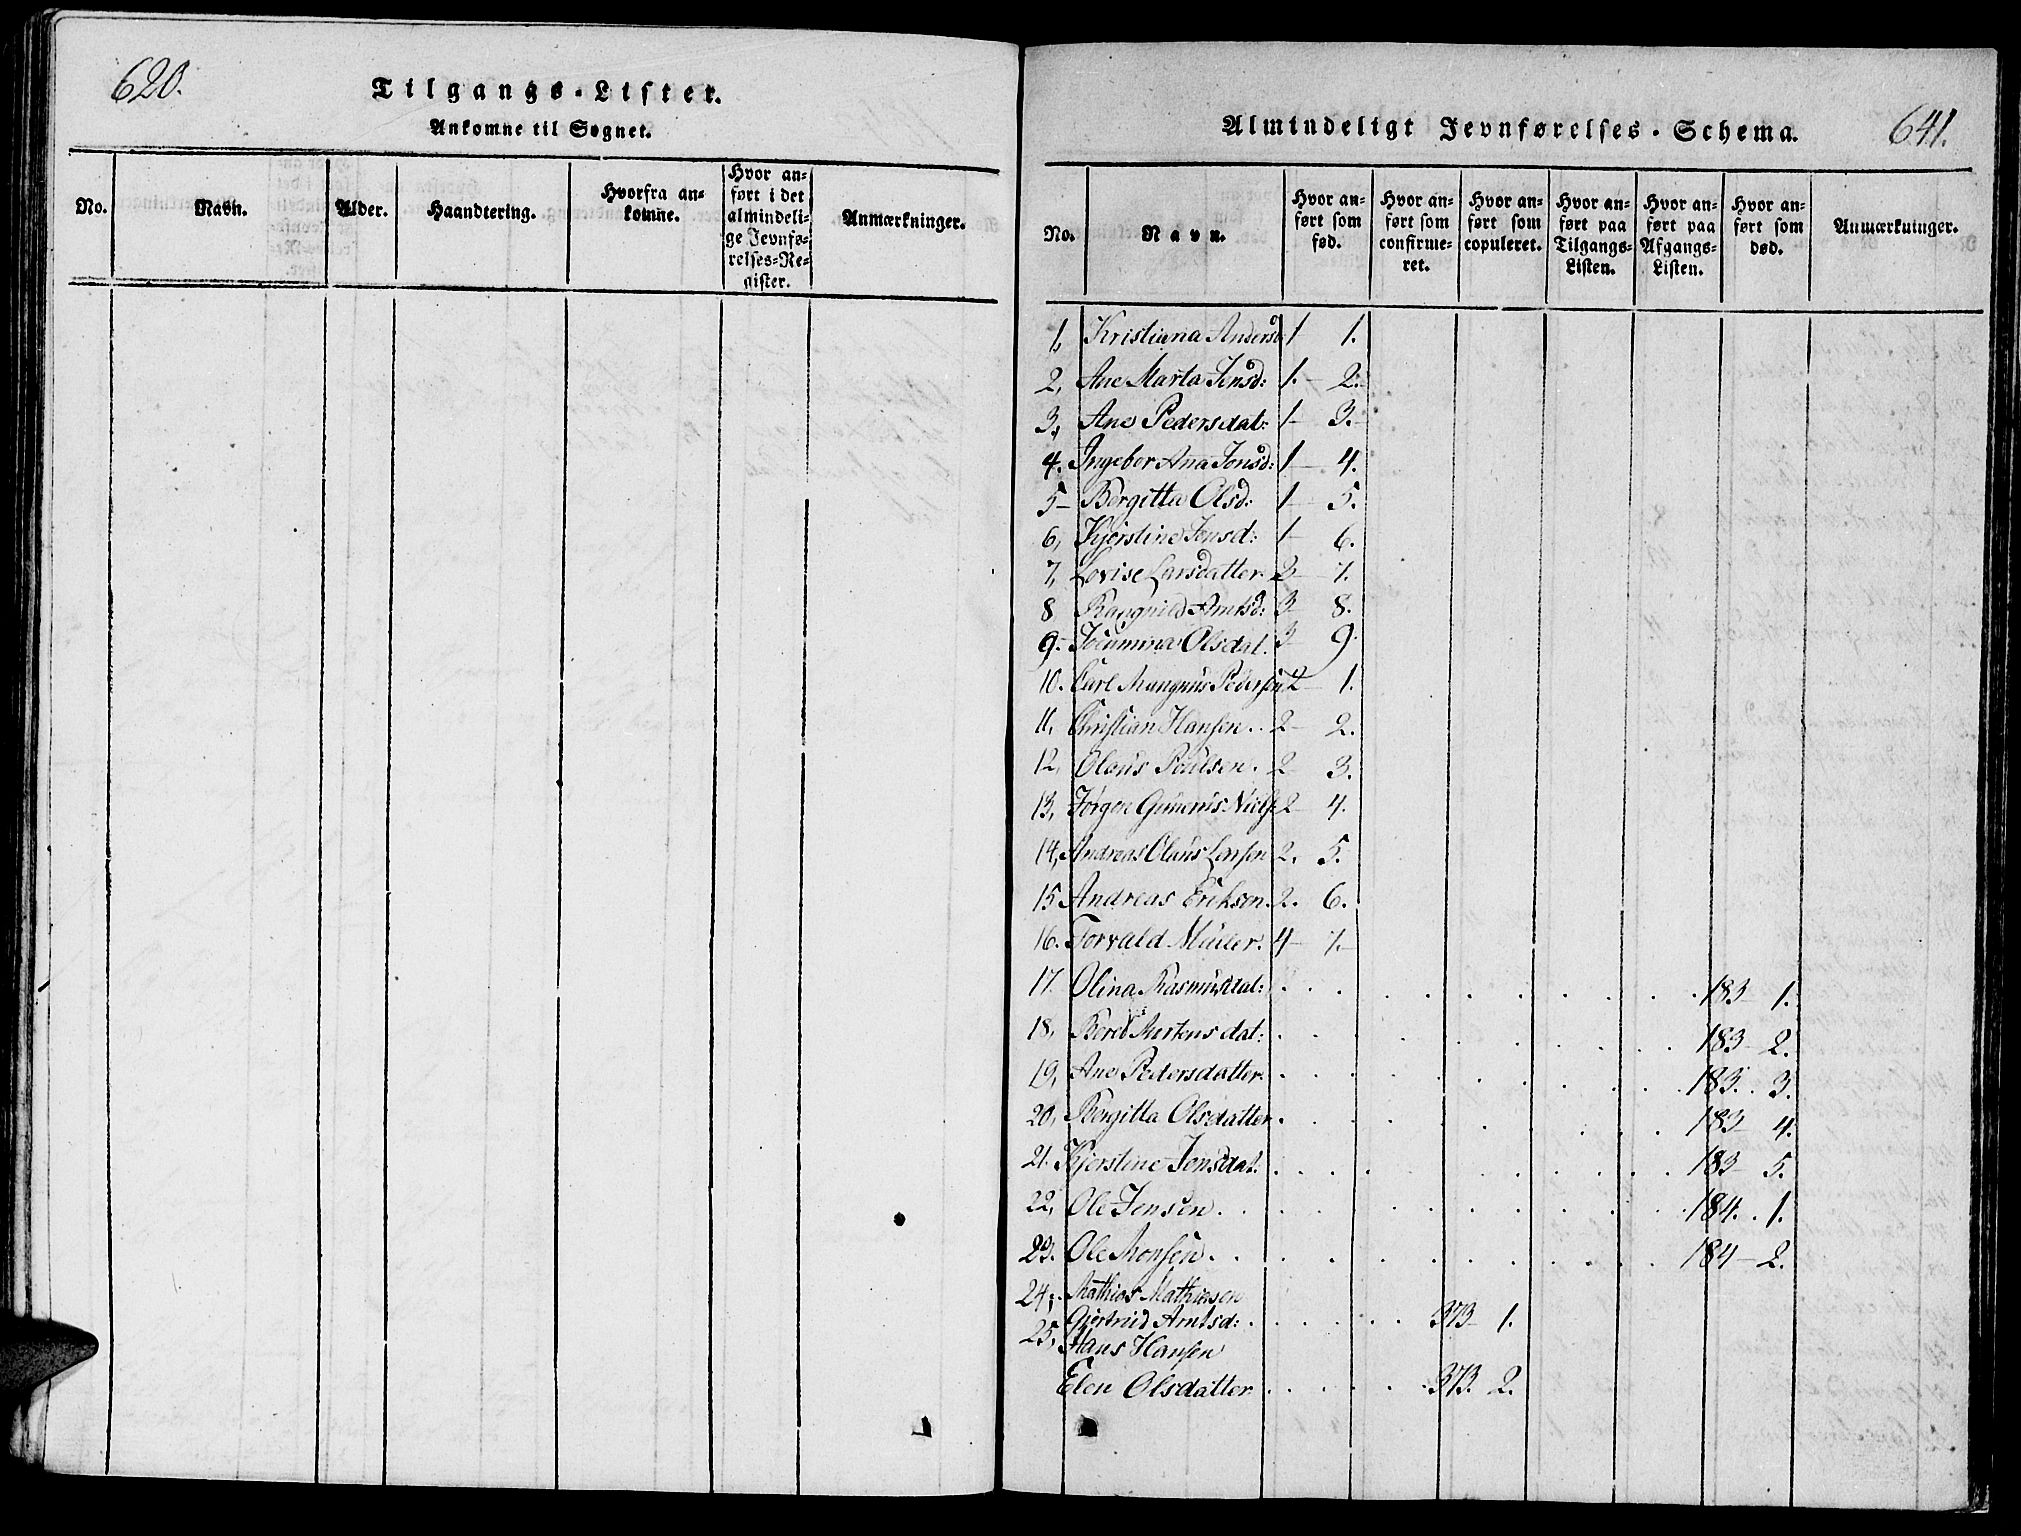 620.
Tilgangs-Lister.
Ankomne til Sognet.
No.
Navn.
Alder.
Haandtering.
Hvorfra an=
komne.
Hvor an=
ført i det
almindeli=
ge Jevnfø=
relses=Re=
gister.
Anmærkninger.
Almindeligt Jevnførelses-Schema.
641.
No.
Navn.
Hvor an=
ført som
fød.
Hvor an=
ført som
confirme=
ret.
Hvor an=
ført som
copuleret.
Hvor an=
ført paa
Tilgangs=
Listen.
Hvor an=
ført paa
Afgangs=
Listen.
Hvor an=
ført som
død.
Anmærkninger.
1, Kristiana Andersd 1 1.
2, Ane Marta Jensd: 1. - 2.
3, Ane Pedersdat: 1 - 3.
4. Ingebor Ana Jonsd: 1 - 4.
5 - Bergitta Olsd: 1 - 5.
6, Kjerstine Jensd: 1 - 6.
7, Lovise Larsdatter. 2 - 7.
8 Rangnild Arntsd: 3 8.
9. Jocumina Olsdat. 3 9.
10. Carl Mangnus Pedersen 2 - 1.
11, Christian Hansen.. 2 - 2.
12, Olaus Poulsen. 2 3.
13, Jørgen Niels 2 - 4.
14, Andreas Olaus Larsen 2. 5.
15 Andreas Eriksen. 2. 6.
16. Torvald Müller. 4 - 7. -
17. Olina Rasmusdat: 183 - 1.
18, Beret Mortensdat: 183 - 2.
19, Ane Pedersdatter. 183. 3.
20, Bergitta Olsdatter. 183 4.
21. Kjerstine Jensdat. 183 - 5.
22, Ole Jensen. 184. . 1.
23. Ole Monsen. 184 - 2.
24, Mathias Mathiesen
Gjertrud Arntsd: 373 - 1.
25, Hans Hansen
Elen Olsdatter 373. 2.